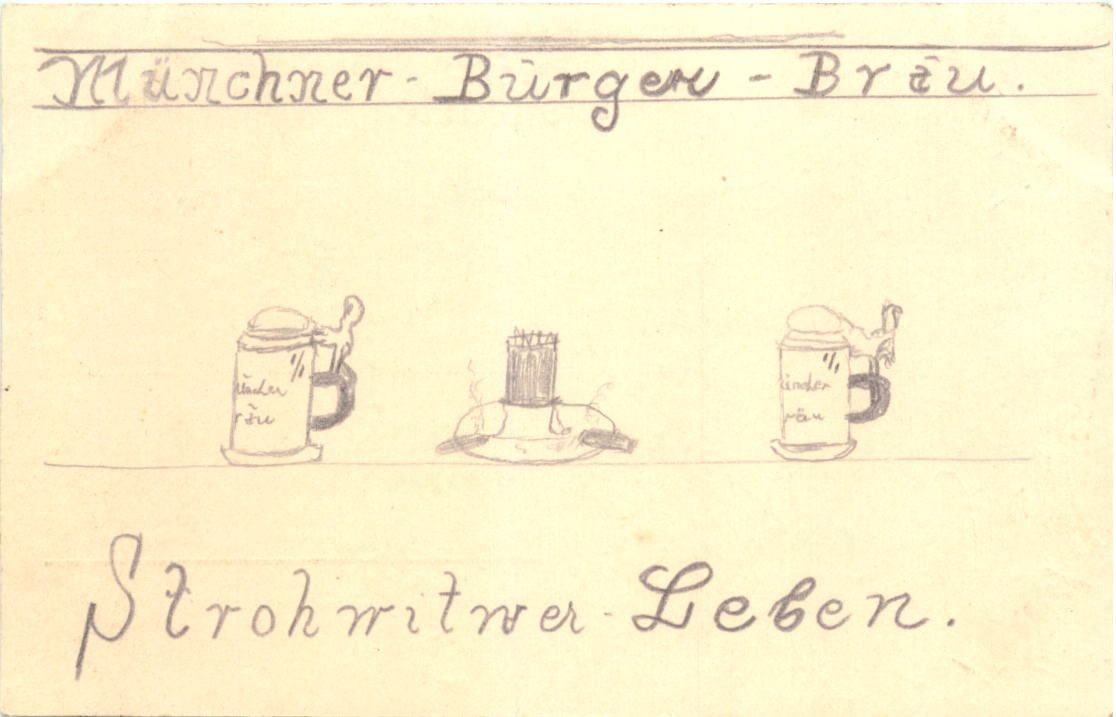 Münchner-Bürger-Bräu.
1/1
räu
1/1
räu
Strohwitwer-Leben.